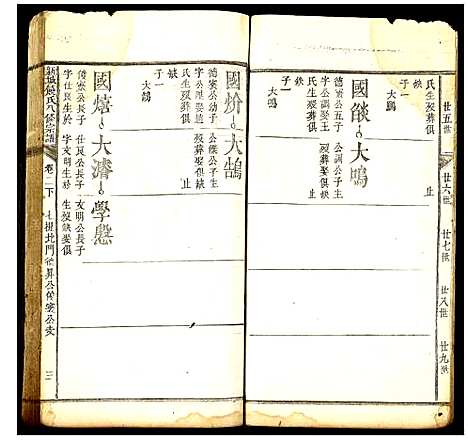 廿五世
廿六世
廿七世
廿八世
廿九世
氏生歿葬俱
缺
子一
大鵾
國燄
大鳴
德寀公五子
字公調娶王
氏生歿葬俱
缺
子一
大鳴
公調公子生
歿葬娶俱缺
止
止
國炌
大鵠
德寀公幼子
字公理娶饒
氏生歿葬俱
缺
子一
大鵠
公理公子生
歿葬娶俱缺
止
國熺
大濬
學懸
俊寀公長子
字仕良生於
仕良公長子
字文明生於
文明公長子
生歿缺娶俱
新城饒氏八修宗譜
卷二下
七提北門
昇公俊寀公支
三